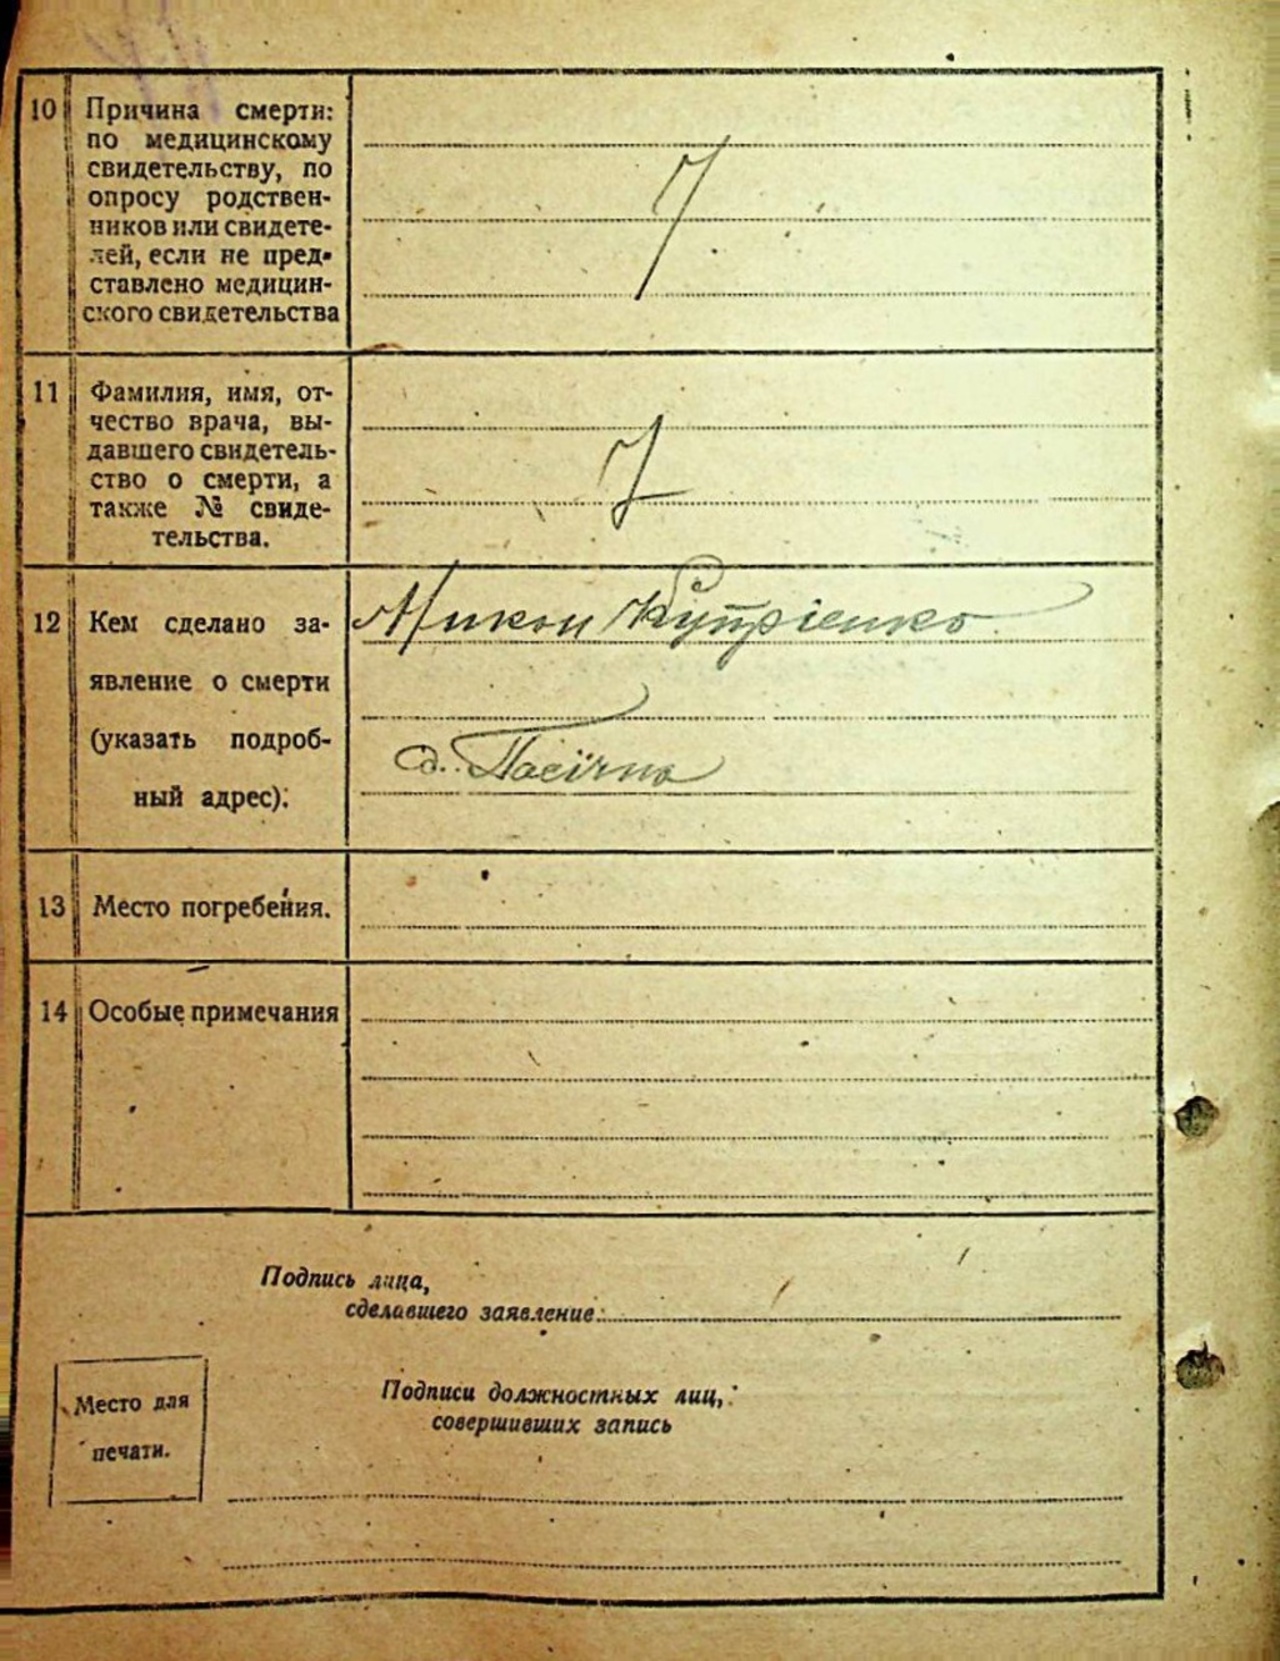 10 Причина смерти:
по медицинскому
свидетельству, по
опросу родствен-
ников или свидете-
лей, если не пред-
ставлено медицин-
ского свидетельства
7
11 Фамилия, имя, от-
чество врача, вы-
давшего свидетель-
ство о смерти, а
также № свиде-
тельства.
7
12 Кем сделано за-
явление о смерти
(указать подроб-
ный адрес).
Микон Купрієнко
с. Пасічна
13 Место погребения.
14 Особые примечания
Подпись лица,
сделавшего заявление:
Место для
печати.
Подписи должностных лиц,
совершивших запись